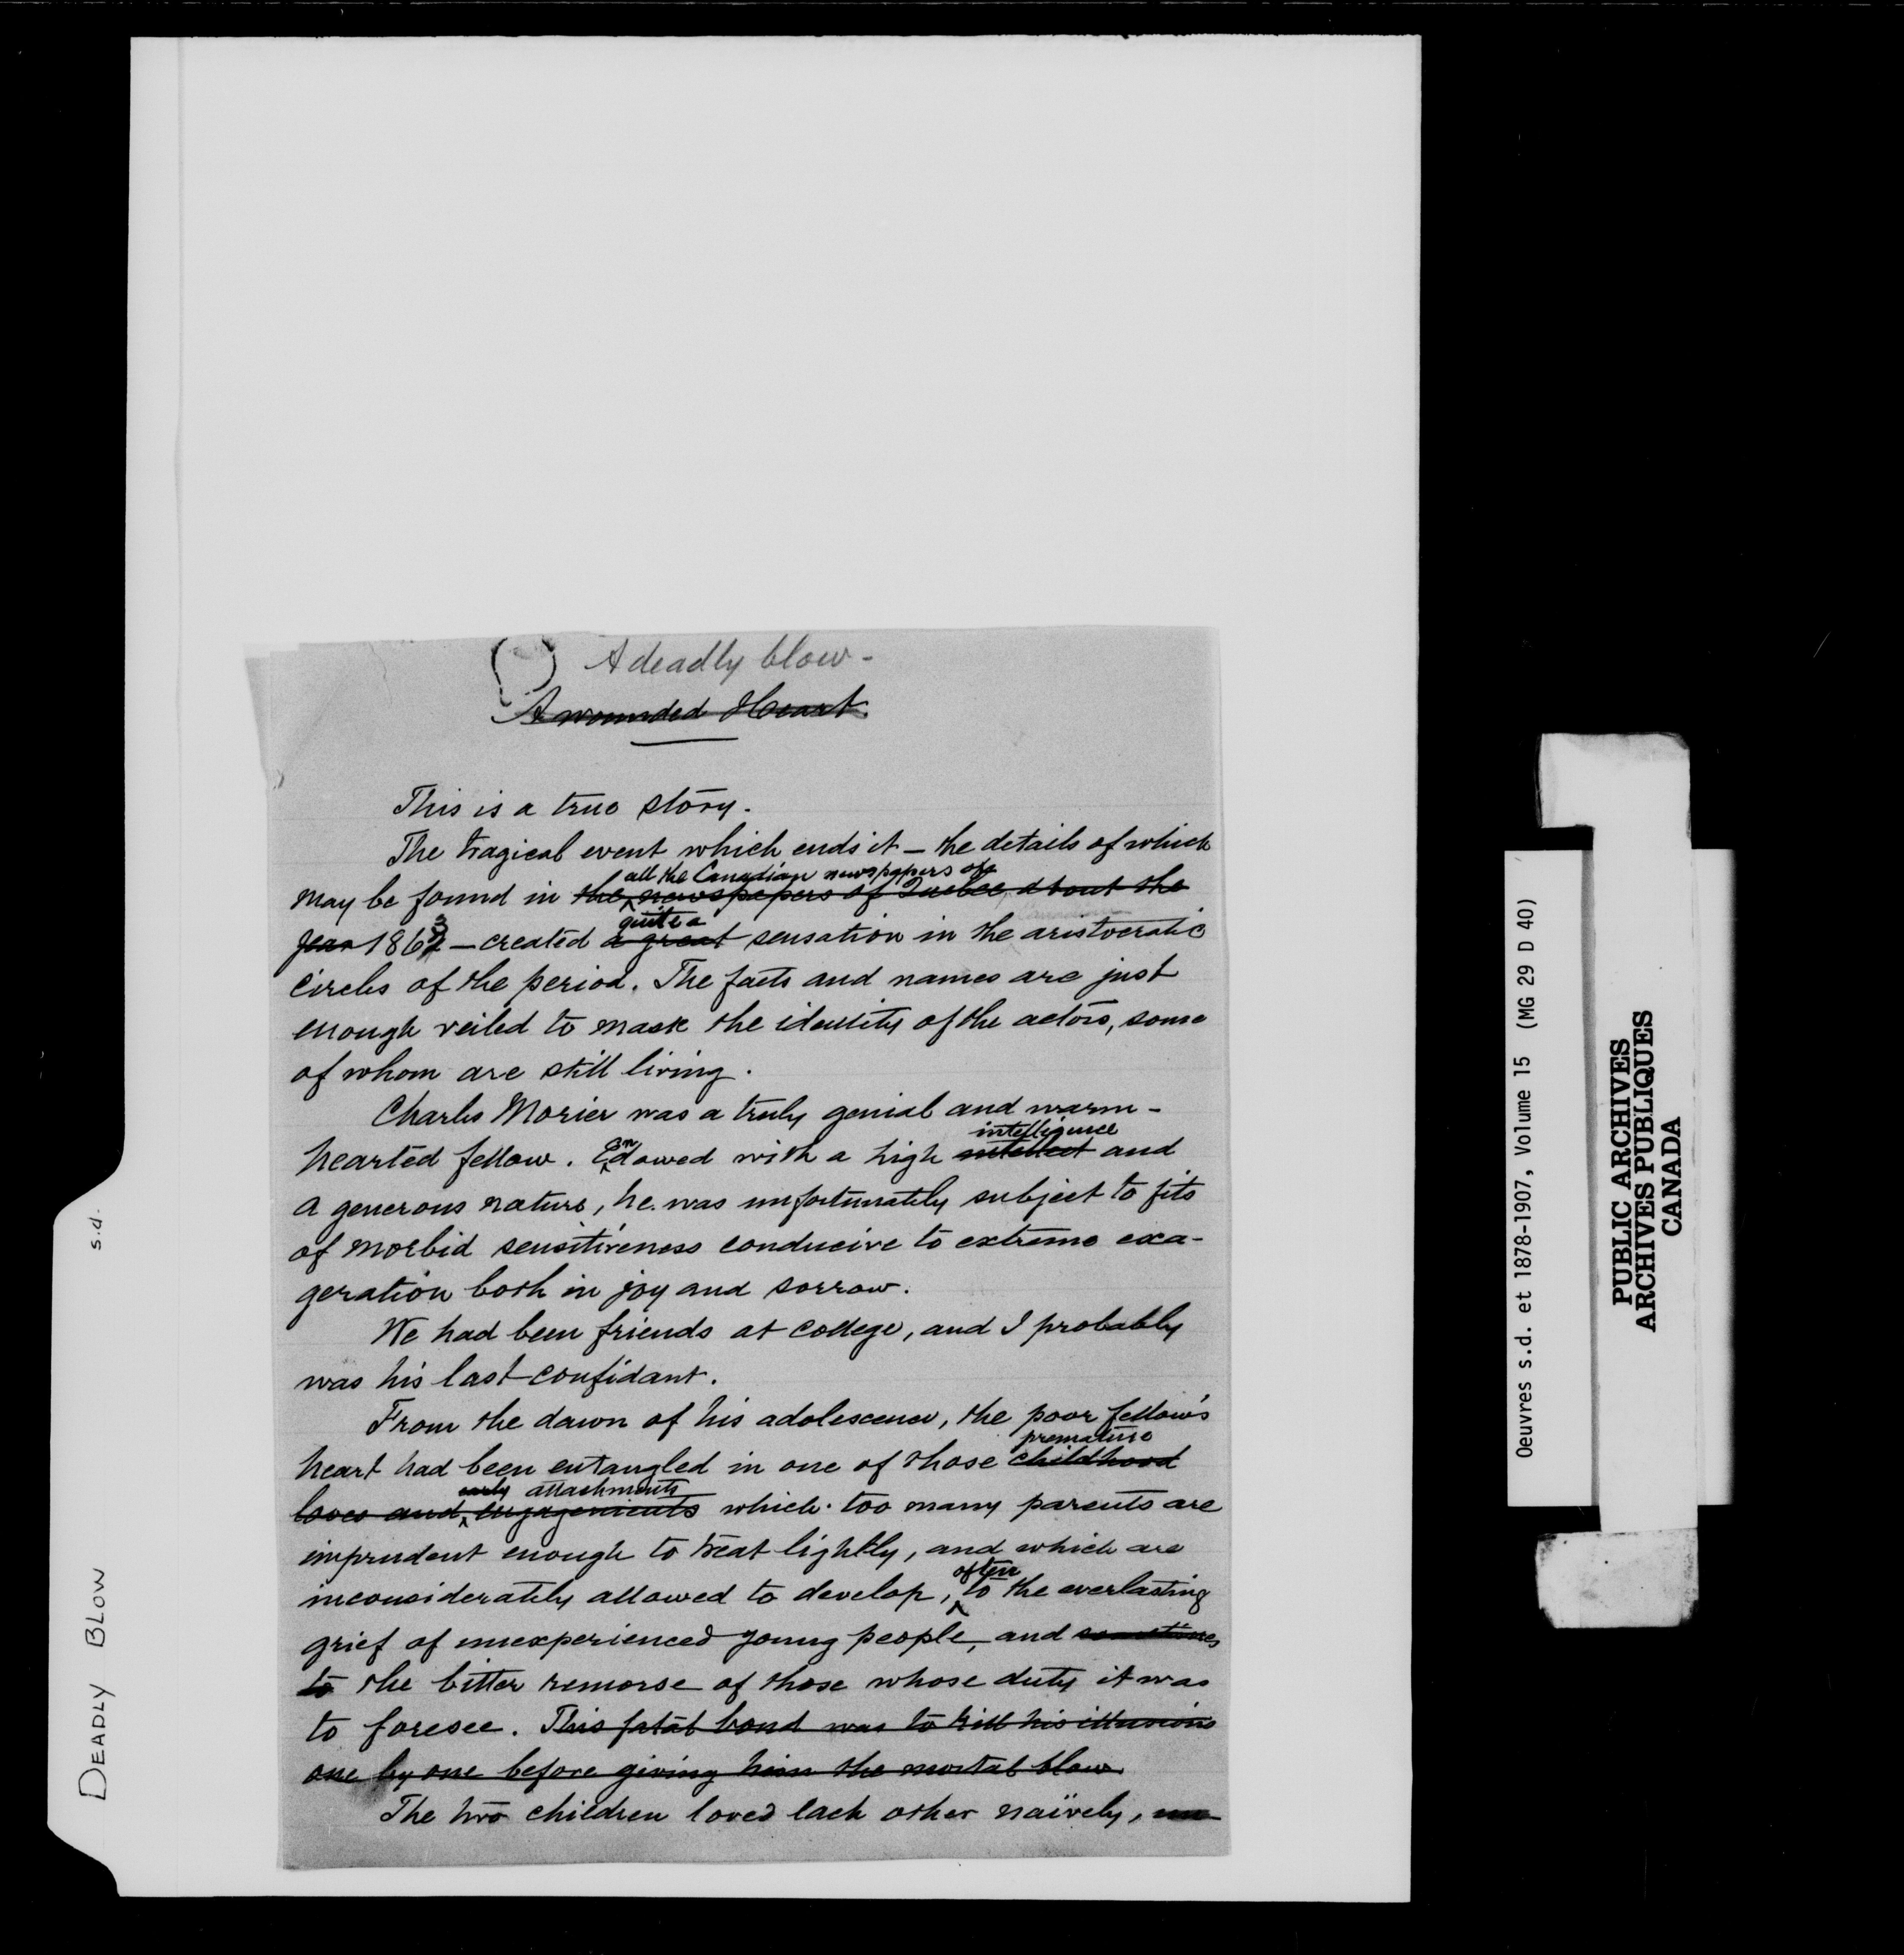 A deadly blow -
A wounded Heart.
This is a true story.
The tragical event which ends it — the details of which
all the Canadian newspapers of
may be found in the newspapers of Quebec, about the
quite a
year 1863 — created a great sensation in the aristocratic
circles of the period. The facts and names are just
enough veiled to mask the identity of the actors, some
of whom are still living.
Charles Morier was a truly genial and warm-
intelligence
hearted fellow. Endowed with a high intellect and
a generous nature, he was unfortunately subject to fits
of morbid sensitiveness conducive to extreme exa-
geration both in joy and sorrow.
We had been friends at college, and I probably
was his last confidant.
From the dawn of his adolescence, the poor fellow's
premature
heart had been entangled in one of those childhood
early attachments
loves and engagements which too many parents are
imprudent enough to treat lightly, and which are
often
inconsiderately allowed to develop, to the everlasting
grief of unexperienced young people, and sometimes
to the bitter remorse of those whose duty it was
to foresee. This fatal bond was to kill his illusions
one by one before giving him the mortal blow.
The two children loved each other naïvely,
DEADLY BLOW s.d.
Oeuvres s.d. et 1878-1907, Volume 15 (MG 29 D 40)
PUBLIC ARCHIVES
ARCHIVES PUBLIQUES
CANADA